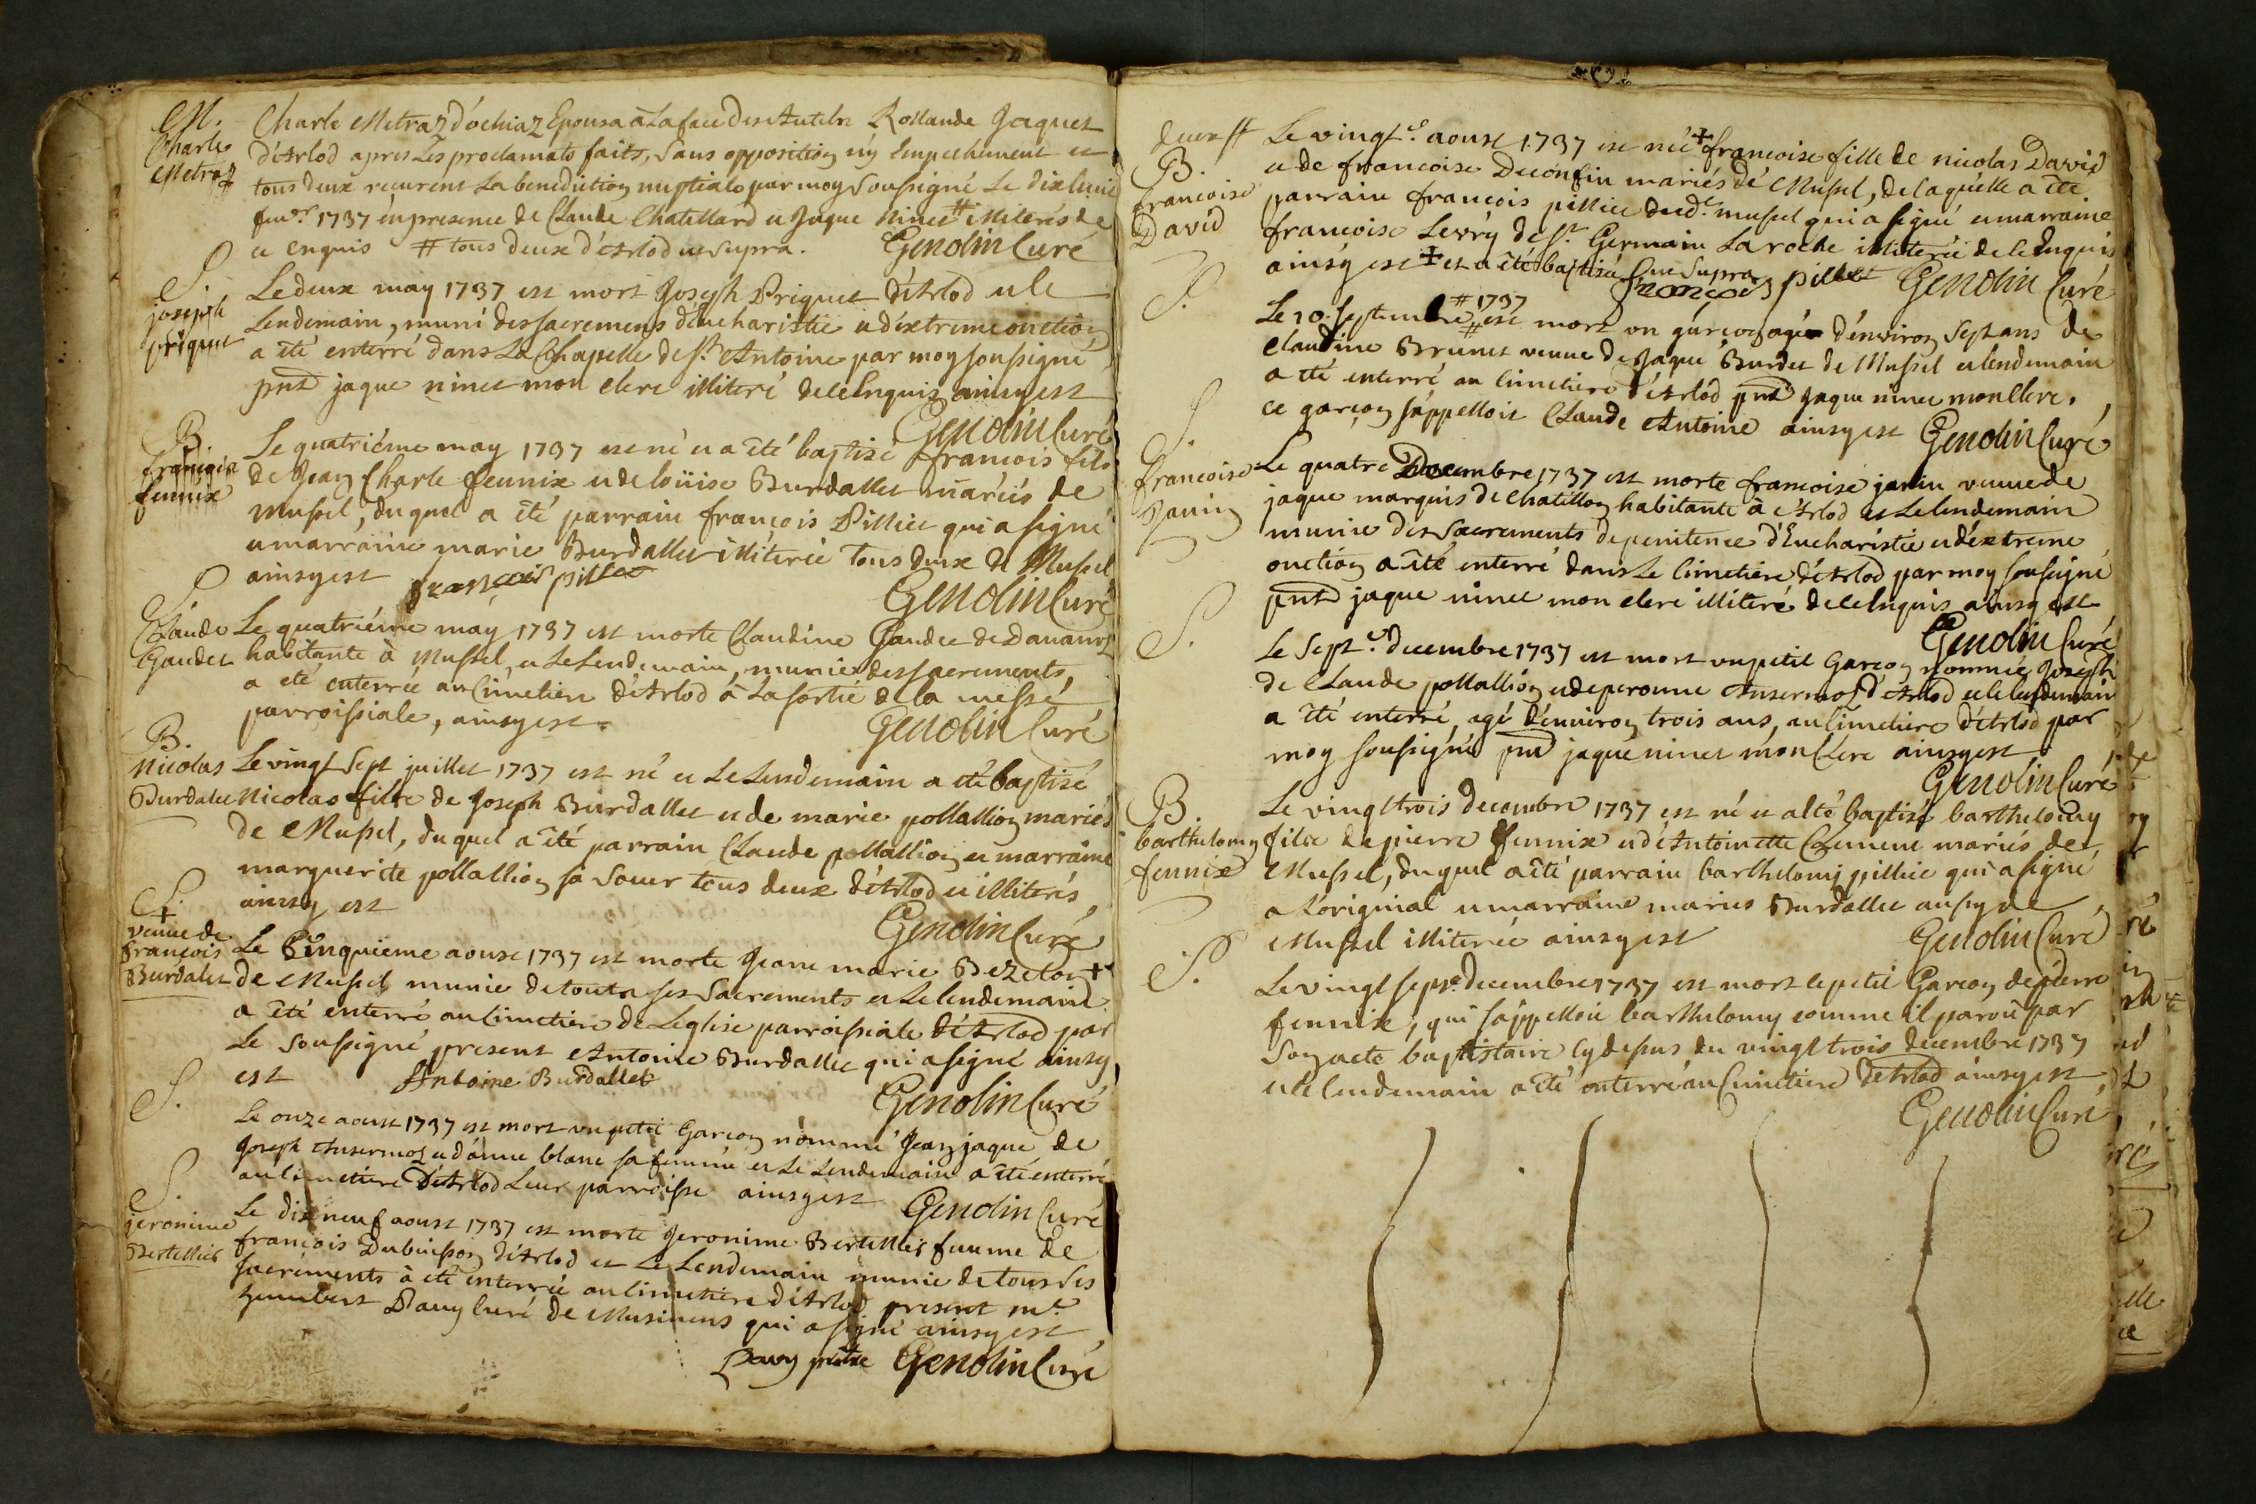 M.
Charle
Metraz
Charle Metraz d'ochiaz Epousa à La face des Autels Rollande Jaquet
d'Arlod apres Les proclamats faits, sans opposition ny Empechement et
tous deux recurent La benediction nuptiale par moy Soussigné Le dixhuit
1737 en presence de Claude Chatillard et Jaque Ninet # illiterés de
ce enquis # tous deux d'Arlod ut Supra. Genolin Curé
S.
joseph
priquet
Le deux may 1737 est mort Joseph Priquet d'Arlod et le
Lendemain, muni des sacremens d'eucharistie et d'extreme onction
a été enterré dans La Chapelle de St Antoine par moy soussigné
pnt jaque ninet mon clerc illiteré de ce Enquis ainsy est
Genolin Curé
B.
francois
fennix
Le quatriéme may 1737 est né et a été baptisé francois fils
de Jean Charle fennix et de loüise Burdallet mariés de
Mussel, du quel a été parrain francois Pilliet qui a signé
et marraine marie Burdallet illiterée tous deux de Mussel
ainsy est francois pillet
Genolin Curé
S.
Claude
Gaudet
Le quatriéme may 1737 est morte Claudine Gaudet de
habitante à Mussel, et Le Lendemain, munie des sacrements,
a eté enterrée au Cimetiere d'Arlod à La sortie de la messe
parroissiale, ainsy est.
Genolin Curé
B.
Nicolas
Burdalet
Le vingt Sept juillet 1737 est né et Le Lendemain a été baptisé
Nicolas fils de Joseph Burdallet et de marie pollallion mariés
de Mussel, du quel a été parrain Claude pollallion et marraine
marguerite pollallion sa soeur tous deux d'Arlod et illiterés
ainsy est
Genolin Curé
S.
+
veuve de
francois
Burdalet
Le Cinquieme aoust 1737 est morte Jeane marie Bezeton +
de Mussel munie de touts ses Sacrements et Le lendemain
a été enterré au cimetiere de L'eglise parroissiale d'Arlod par
le soussigné present Antoine Burdallet qui a signé ainsy
est Antoine Burdallet
Genolin Curé
S.
Le onze aoust 1737 est mort un petit Garçon nommé Jean jaque de
Joseph Ansermoz et d'anne blanc sa femme et Le Lendemain a été enterré
au cimetiere d'Arlod Leur parroisse ainsy est Genolin Curé
S.
jeronime
Bertellier
Le dix neuf aoust 1737 est morte Jeronime Bertellier femme de
francois Dubuisson d'Arlod et Le Lendemain munie de tous ses
sacrements à eté enterrée au cimetiere d'Arlod present mre
humbert Davy curé de Musinens qui a signé ainsy est
Davy prêtre Genolin Curé
B.
francoise
David
Le vingt.e aoust 1737 est née + francoise fille de nicolas David
et de francoise Deconfin mariés de Mussel, de laquelle a été
parrain francois pilliet dud.t mussel qui a signé et marraine
francoise Levry de St Germain La roche illiterée de ce Enquis
ainsy est + et a été baptisée ut Supra
francois pillet Genolin Curé
S.
Le 10 Septembre # 1737 # est mort un garçon agé d'environ Sept ans de
Claudine Brunet veuve de Jaque Burdet de Mussel et lendemain
a été enterré au cimetiere d'Arlod pnt Jaque ninet mon Clerc.
ce garçon s'appelloit Claude Antoine ainsy est Genolin Curé
S.
francoise
Janin
Le quatre Decembre 1737 est morte francoise janin veuve de
jaque marquis de Chatillon habitante à Arlod et Le lendemain
munie des Sacrements de penitence d'Eucharistie et d'extreme
onction a été enterré dans Le Cimetiere d'Arlod par moy soussigné
pnt jaque ninet mon clerc illiteré de ce Enquis ainsy est
Genolin Curé
S.
Le Sept.e decembre 1737 est mort un petit Garçon nommé Joseph
de Claude pollallion et de peronne Ansermoz d'Arlod et le lendemain
a été enterré, agé d'environ trois ans, au Cimetiere d'Arlod par
moy soussigné pnt jaque ninet mon Clerc ainsy est.
Genolin Curé
B.
barthelomy
fennix
Le vingt trois decembre 1737 est né et a été baptisé barthelomy
fils de pierre fennix et d'Antoinette Clement mariés de
Mussel, du quel a été parrain barthelomy pilliet qui a signé
a L'original et marraine marie Burdallet aussy de
Mussel illiterée ainsy est
Genolin Curé
S.
Le vingt sept.e decembre 1737 est mort le petit Garçon de pierre
fennix, qui s'appelloit barthelomy comme il paroit par
Son acte baptistaire cy dessus du vingt trois decembre 1737
et le lendemain a été enterré au Cimetiere d'Arlod ainsy est
Genolin Curé